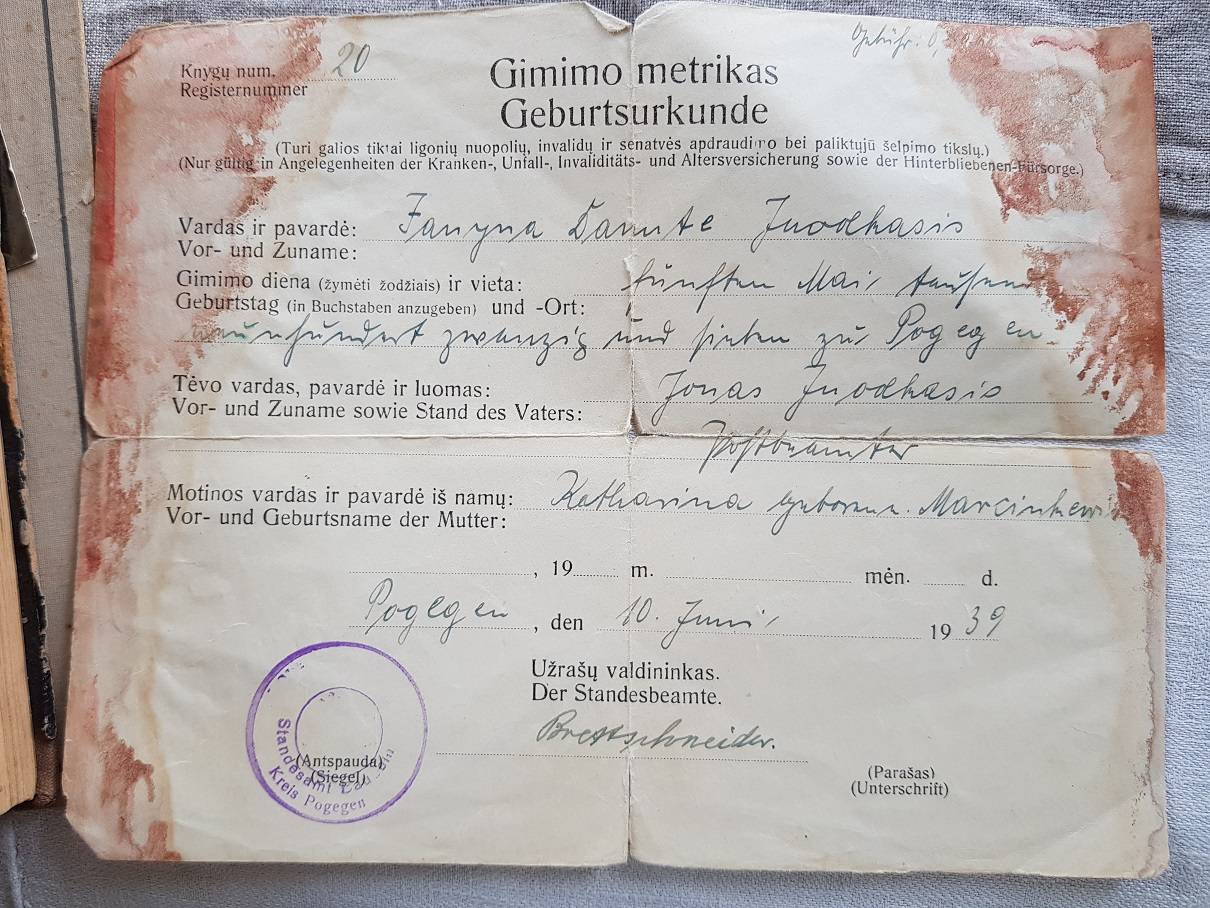 Knygų num. 20
Registernummer
Gebühr. 0,
Gimimo metrikas
Geburtsurkunde
(Turi galios tiktai ligonių nuopolių, invalidų ir senatvės apdraudimo bei paliktųjū šelpimo tikslų.)
(Nur gültig in Angelegenheiten der Kranken-, Unfall-, Invaliditäts- und Altersversicherung sowie der Hinterbliebenen-Fürsorge.)
Vardas ir pavardė: Janyna Danute Juodkasis
Vor- und Zuname:
Gimimo diena (žymėti žodžiais) ir vieta: fünften Mai, tausend
Geburtstag (in Buchstaben anzugeben) und -Ort:
neunhundert zwanzig und sieben zu Pogegen
Tėvo vardas, pavardė ir luomas: Jonas Juodkasis
Vor- und Zuname sowie Stand des Vaters:
Postbeamter
Motinos vardas ir pavardė iš namų: Katharina geborene Marcinkewi
Vor- und Geburtsname der Mutter:
, 19 m. mėn. d.
Pogegen, den 10. Juni 1939
Užrašų valdininkas.
Der Standesbeamte.
Brettschneider.
(Antspauda)
(Siegel)
Standesamt
Kreis Pogegen
(Parašas)
(Unterschrift)